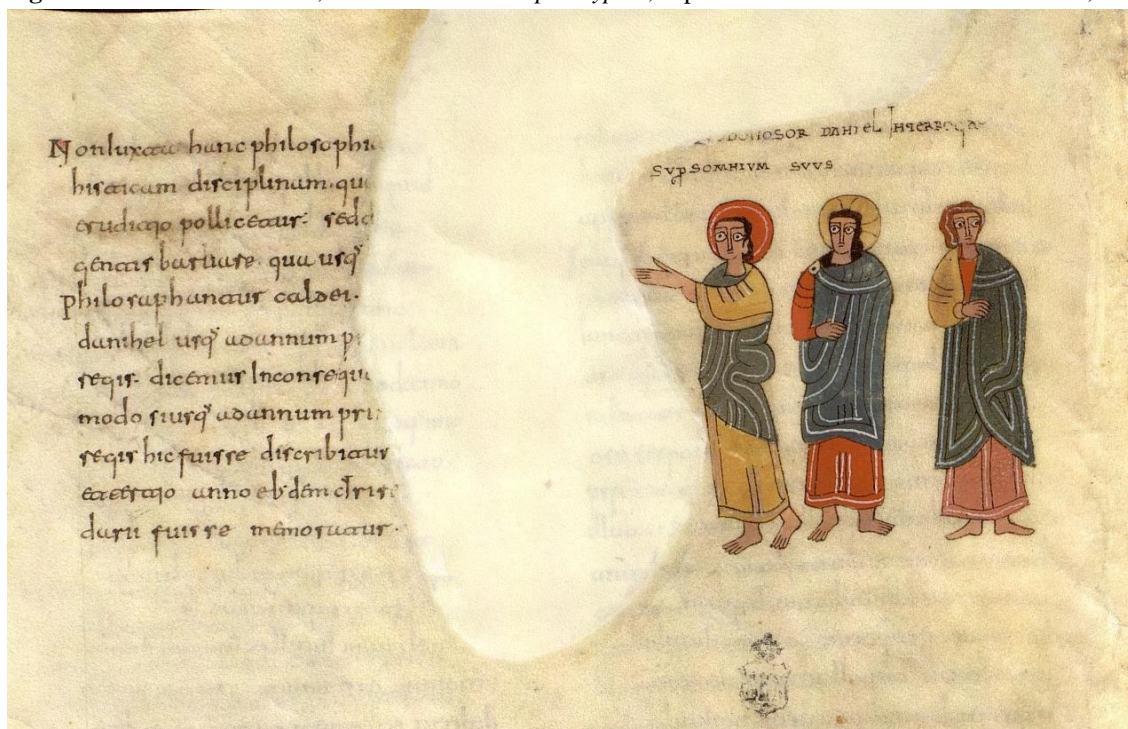 Non iuxta hanc philosophi
disciplinam. qu
eruditio pollicetur: sed
gentis barbare. qua usq
philosophantur caldei.
danihel usq ad annum pri
regis. dicemus In consequ
modo si usq ad annum pri
regis hic fuisse discribitur
et tertio anno
darii fuisse memoratur.
DONOSOR DANIEL INTERROGA
SUP SOMNIUM SUUS